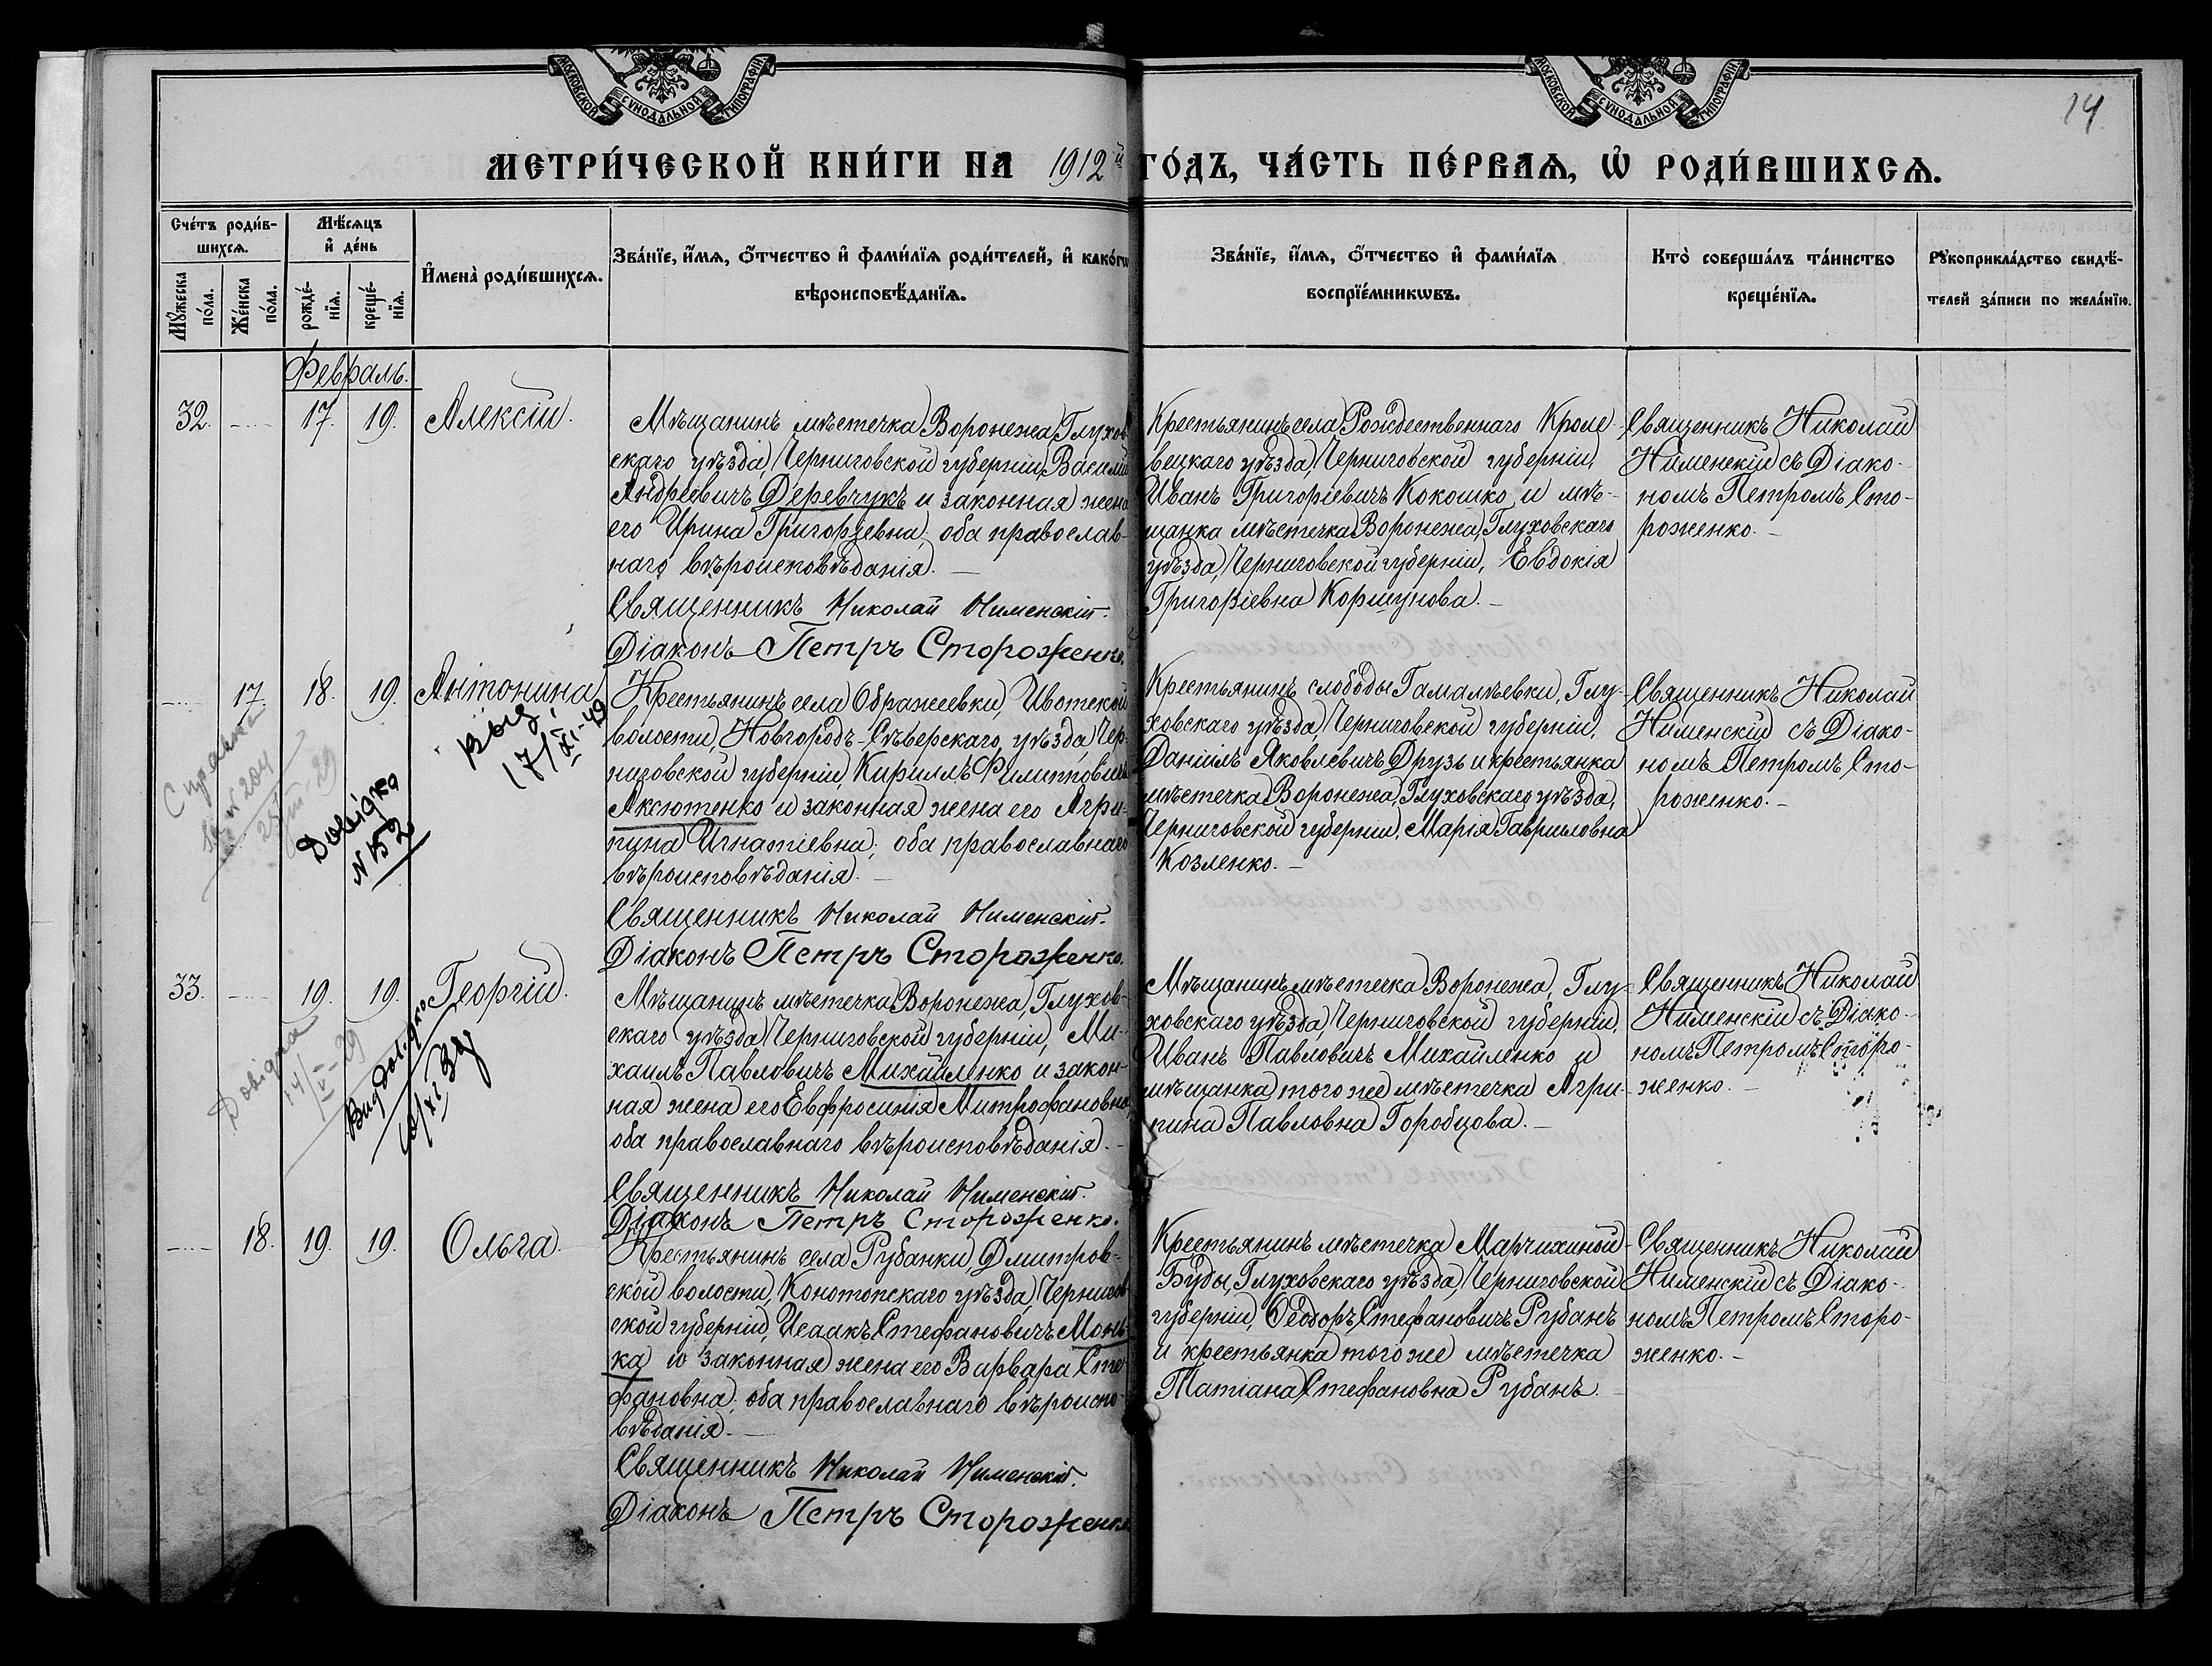 МОСКОВСКОЙ СУНОДАЛЬНОЙ ТИПОГРАФІИ
МОСКОВСКОЙ СУНОДАЛЬНОЙ ТИПОГРАФІИ
14.
МЕТРИ́ЧЕСКОЙ КНИ́ГИ НА 1912й ГО́ДЪ, ЧА́СТЬ ПЕ́РВАѦ, Ѡ҆ РОДИ́ВШИХСѦ.
Сче́тъ роди́в-
шихсѧ.
Мѣ́сѧцъ
и҆ де́нь
Мꙋ́жеска по́ла.
Же́нска по́ла.
рожде́-нїѧ.
креще́-нїѧ.
И҆мена̀ роди́вшихсѧ.
Зва́нїе, и҆́мѧ, ѻ҆́тчество и҆ фами́лїѧ роди́телей, и҆ како́гѡ
вѣроисповѣ́данїѧ.
Зва́нїе, и҆́мѧ, ѻ҆́тчество и҆ фами́лїѧ
воспрїе́мникѡвъ.
Кто̀ соверша́лъ та́инство
креще́нїѧ.
Рꙋкоприкла́дство свидѣ́-
телей за́писи по жела́нїю.
Февраль.
32. 17. 19. Алексій.
Мѣщанинъ мѣстечка Воронежа, Глухов-
скаго уѣзда, Черниговской губерніи, Василій
Андреевичъ Деревчукъ и законная жена
его Ирина Григоріевна; оба православ-
наго вѣроисповѣданія. —
Священникъ Николай Нименскій.
Діаконъ Петръ Стороженко.
Крестьянинъ села Рождественнаго Кроле-
вецкаго уѣзда, Черниговской губерніи,
Иванъ Григоріевичъ Кокошко и мѣ-
щанка мѣстечка Воронежа, Глуховскаго
уѣзда, Черниговской губерніи, Евдокія
Григоріевна Коршунова. —
Священникъ Николай
Нименскій съ Діако-
номъ Петромъ Сто-
роженко. —
17. 18. 19. Антонина
Выд.
17/XI-49
Справка
№ 204
29
Довідка
N 152
Крестьянинъ села Ображеевки, Ивотской
волости, Новгородъ-Сѣверскаго уѣзда, Чер-
ниговской губерніи, Кириллъ Филипповичъ
Аксютенко и законная жена его Агри-
пина Игнатіевна; оба православнаго
вѣроисповѣданія. —
Священникъ Николай Нименскій.
Діаконъ Петръ Стороженко.
Крестьянинъ слободы Гамалѣевки, Глу-
ховскаго уѣзда, Черниговской губерніи,
Даніилъ Яковлевичъ Друзь и крестьянка
мѣстечка Воронежа, Глуховскаго уѣзда,
Черниговской губерніи, Марія Гавриловна
Козленко. —
Священникъ Николай
Нименскій съ Діако-
номъ Петромъ Сто-
роженко. —
33. 19. 19. Георгій.
Довідка
14/IV-29
Вид довідка
Мѣщанинъ мѣстечка Воронежа, Глухов-
скаго уѣзда, Черниговской губерніи, Ми-
хаилъ Павловичъ Михайленко и закон-
ная жена его Евфросинія Митрофановна,
оба православнаго вѣроисповѣданія. —
Священникъ Николай Нименскій.
Діаконъ Петръ Стороженко.
Мѣщанинъ мѣстечка Воронежа, Глу-
ховскаго уѣзда, Черниговской губерніи,
Иванъ Павловичъ Михайленко и
мѣщанка того же мѣстечка Агри-
пина Павловна Горобцова. —
Священникъ Николай
Нименскій съ Діако-
номъ Петромъ Сторо-
женко. —
18. 19. 19. Ольга.
Крестьянинъ села Рубанки, Дмитров-
ской волости, Конотопскаго уѣзда, Чернигов-
ской губерніи, Исаакъ Стефановичъ Монь-
ка и законная жена его Варвара Сте-
фановна; оба православнаго вѣроиспо-
вѣданія. —
Священникъ Николай Нименскій.
Діаконъ Петръ Стороженко.
Крестьянинъ мѣстечка Марчихиной-
Буды, Глуховскаго уѣзда, Черниговской
губерніи, Ѳеодоръ Стефановичъ Рубанъ
и крестьянка того же мѣстечка
Татіана Стефановна Рубанъ.
Священникъ Николай
Нименскій съ Діако-
номъ Петромъ Сторо-
женко. —